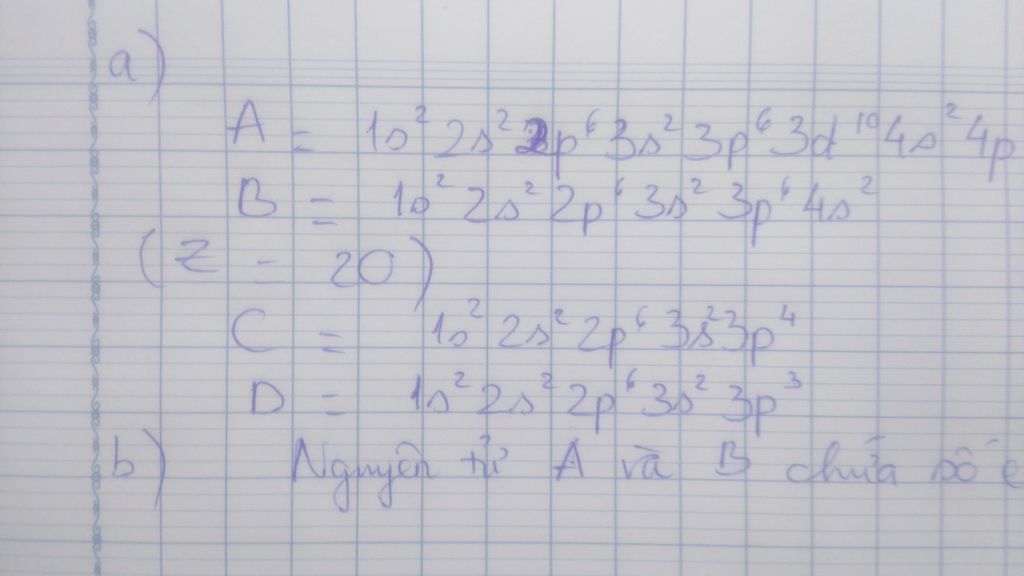 a)
A = 1s² 2s² 2p⁶ 3s² 3p⁶ 3d¹⁰ 4s² 4p
B = 1s² 2s² 2p⁶ 3s² 3p⁶ 4s²
(Z = 20)
C = 1s² 2s² 2p⁶ 3s² 3p⁴
D = 1s² 2s² 2p⁶ 3s² 3p³
b) Nguyên tử A và B chứa số e